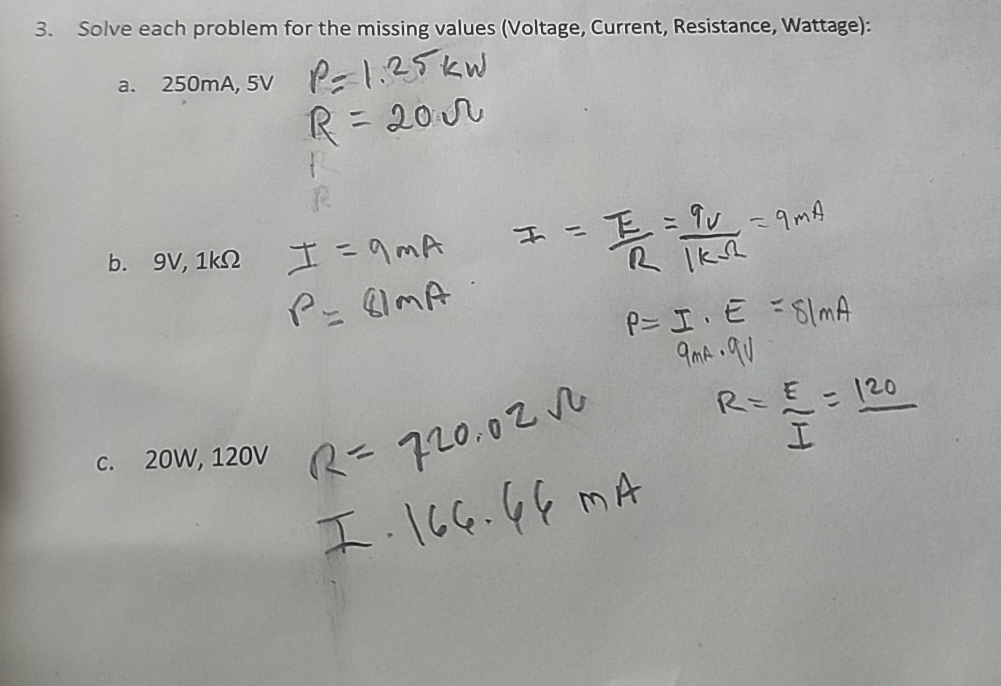 3. Solve each problem for the missing values (Voltage, Current, Resistance, Wattage):
a. 250mA, 5V
P= 1.25 kW
R = 20 Ω
R
b. 9V, 1kΩ
I = 9mA
P= 81mA
I = E/R = 9V/1kΩ = 9mA
P= I . E = 81mA
9mA . 9V
R= E/I = 120
c. 20W, 120V
R= 720.02 Ω
I. 166.66 mA